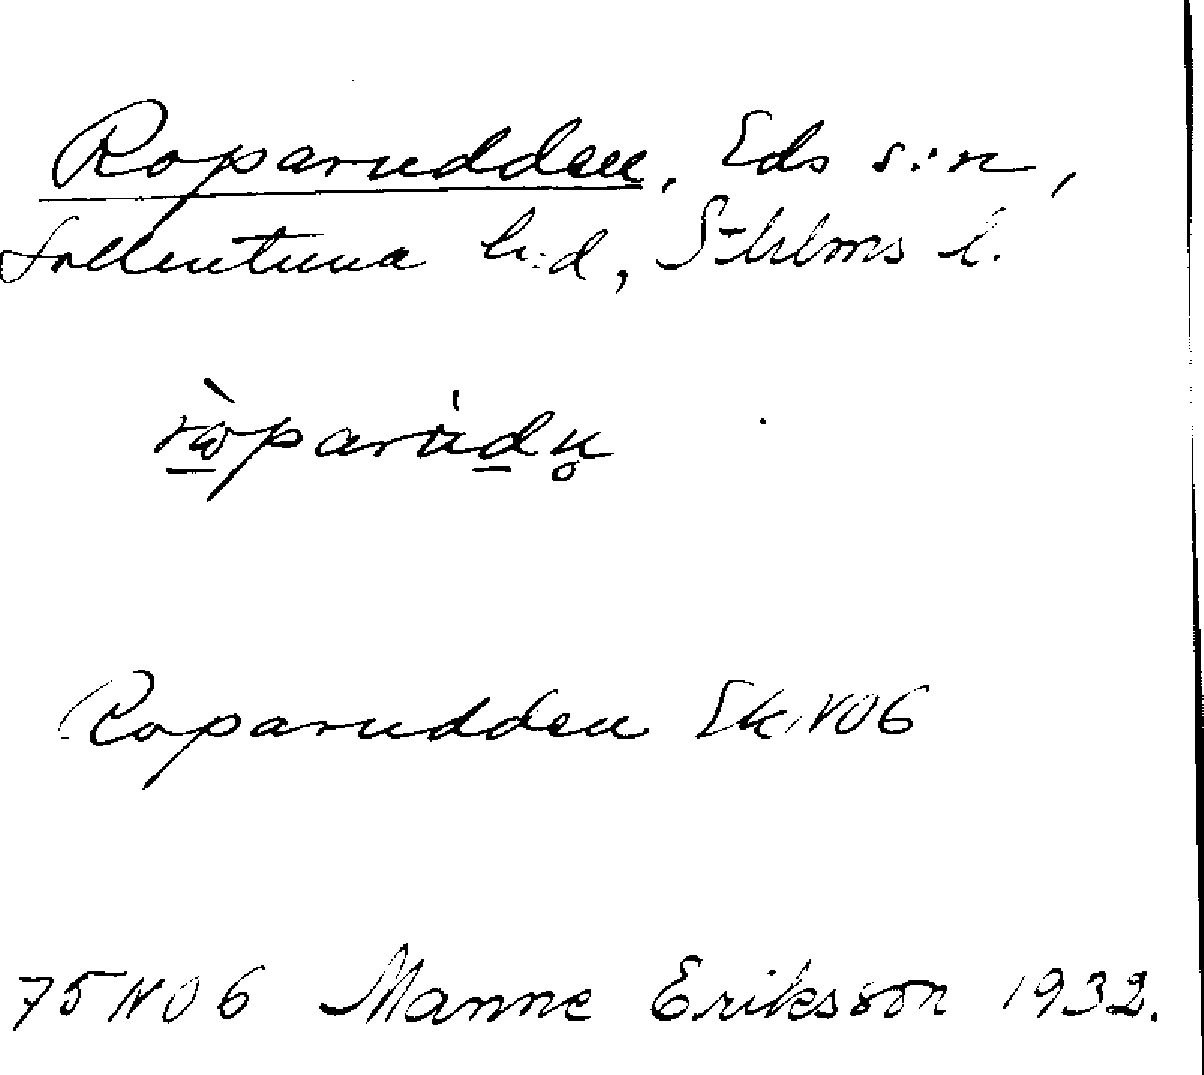 Roparudden, Eds s:n,
Sollentuna h:d, Sthlms l.
ròparu̍dn̥
Roparudden Ek. NO6
75 NO 6 Manne Eriksson 1932.